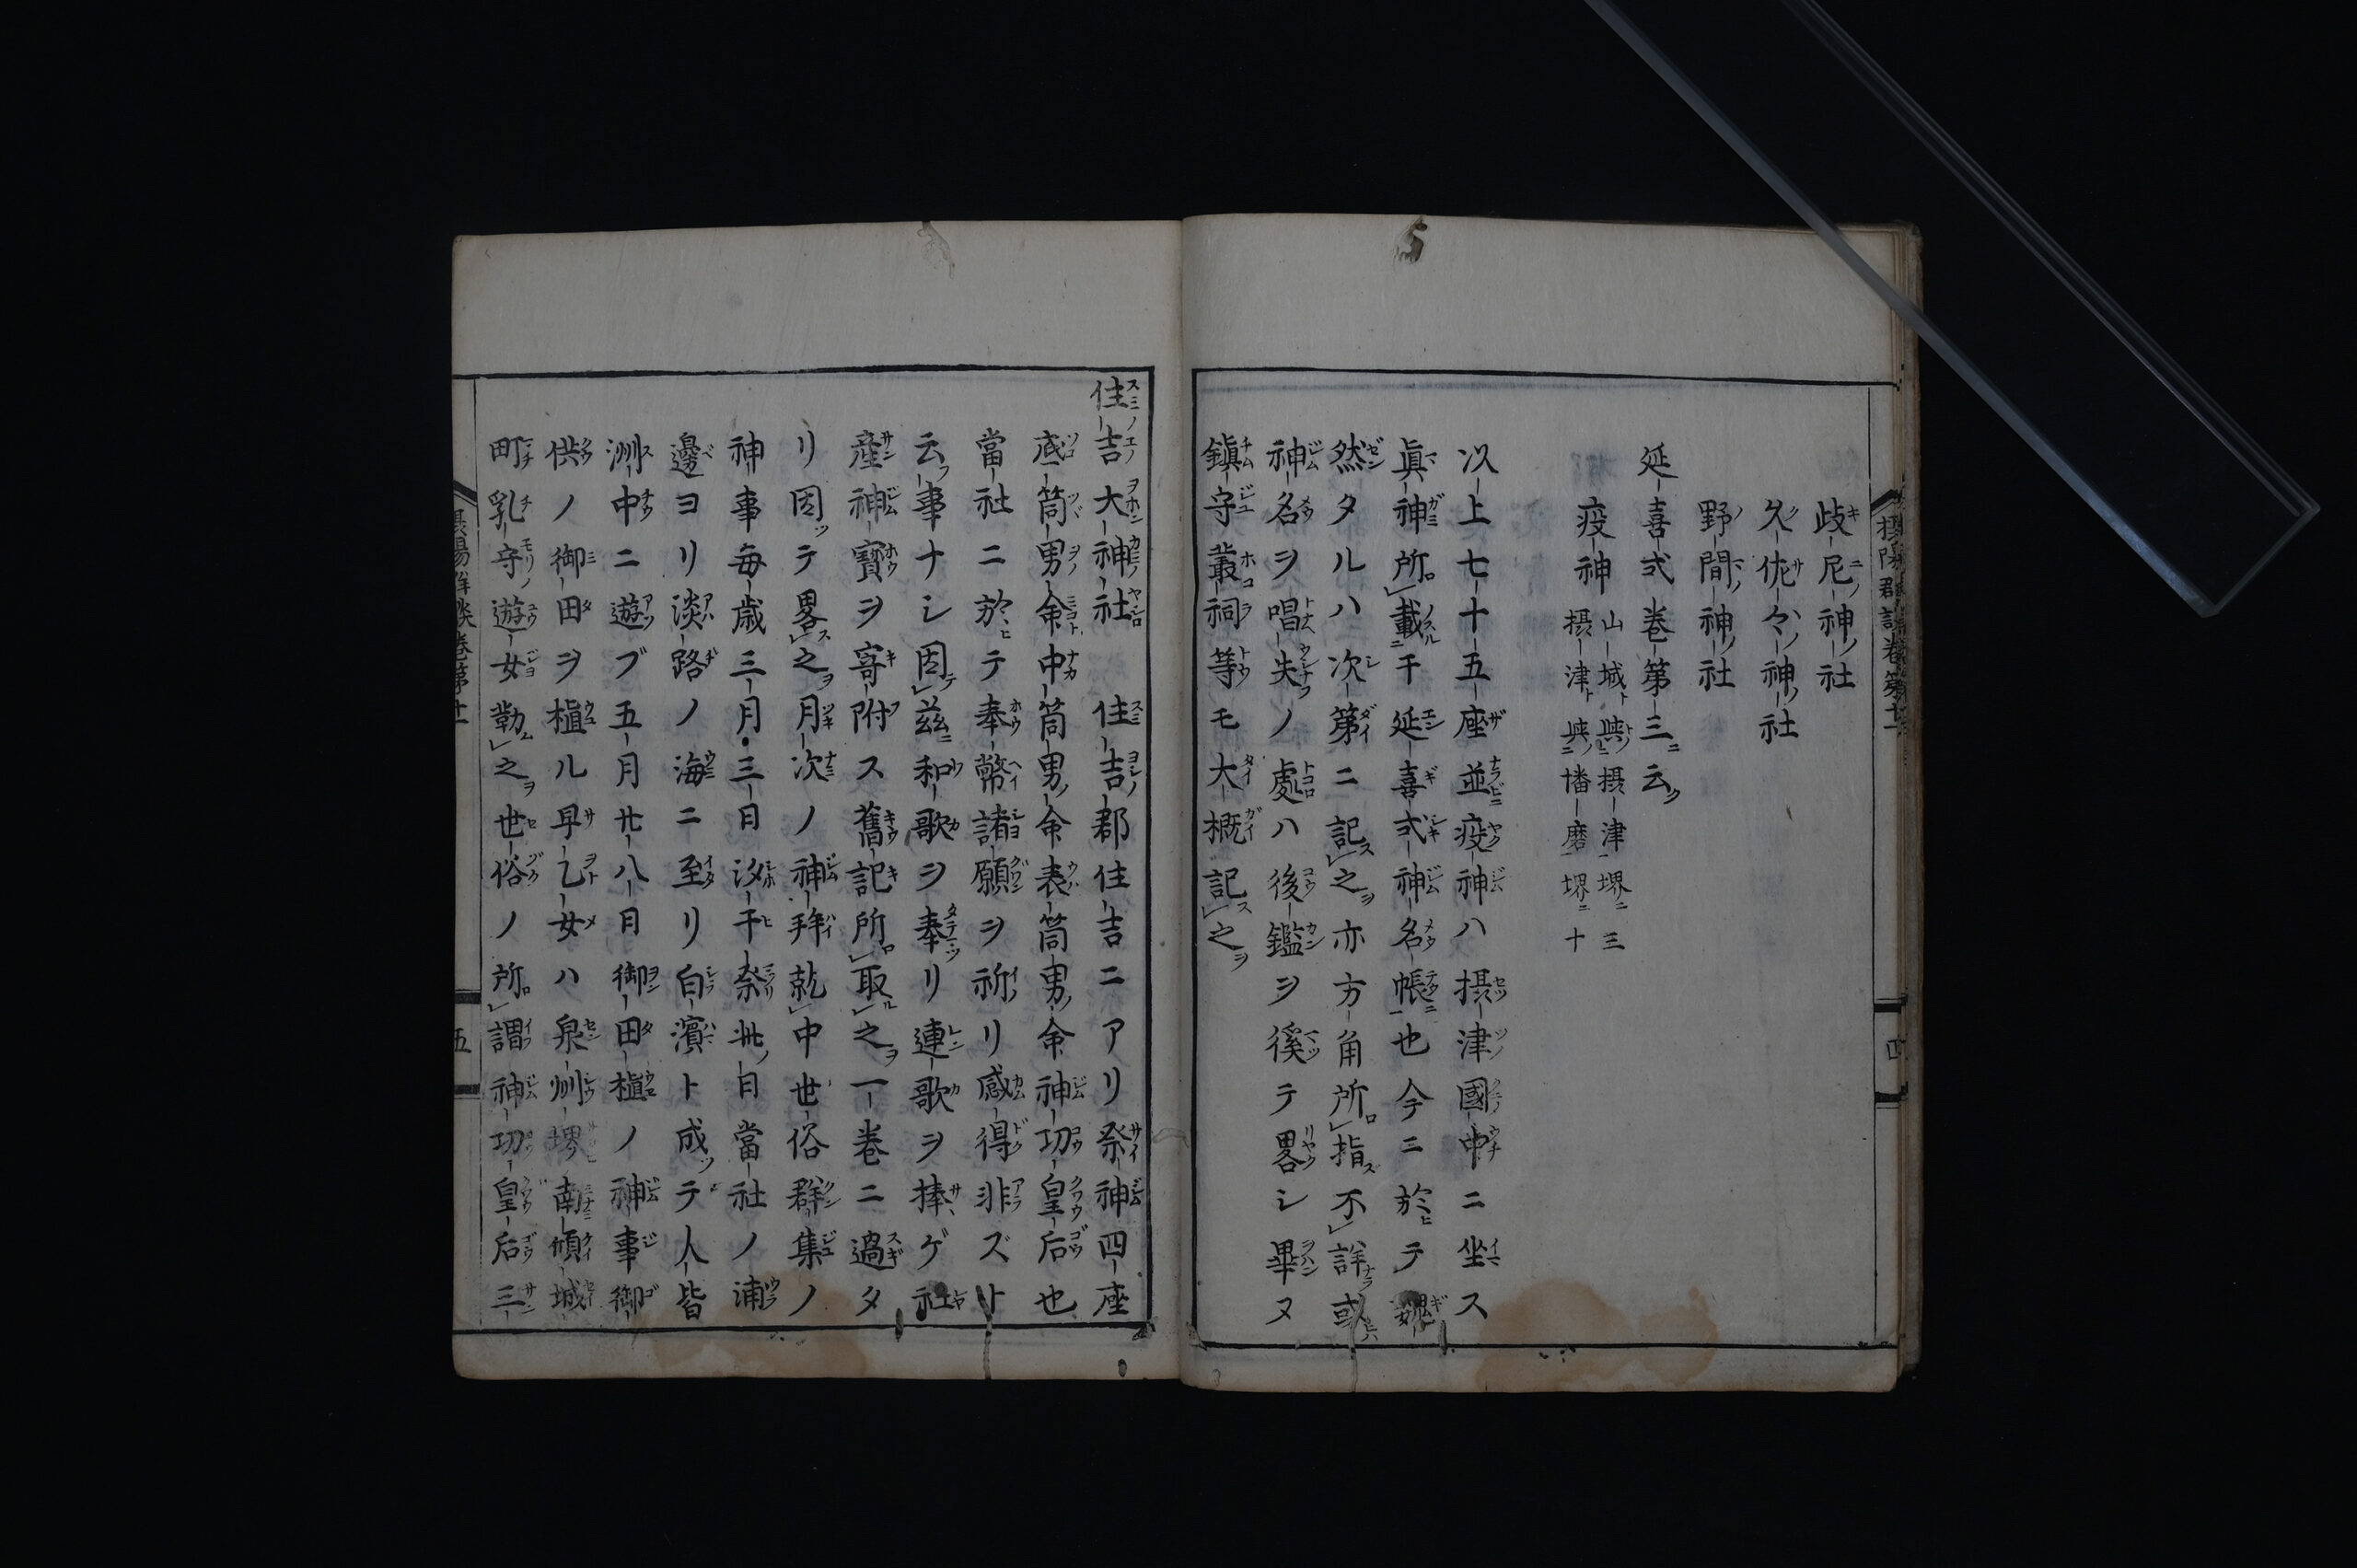 摂陽群談巻第十一
四
歧尼神社
久佐々神社
野間神社
延喜式巻第三云
疫神 山城与摂津堺三
摂津与播磨堺十
以上七十五座並疫神ハ摂津國中ニ坐ス
眞神所載于延喜式神名帳也今ニ於テ
然タルハ次第ニ記之亦方角所指不詳或
神名ヲ唱失ノ處ハ後鑑ヲ徯テ畧シ畢ヌ
鎮守叢祠等モ大概記之
住吉大神社 住吉郡住吉ニアリ祭神四座
底筒男命中筒男命表筒男命神功皇后也
當社ニ於テ奉幣諸願ヲ祈リ感得非ズト
云事ナシ因茲和歌ヲ奉リ連歌ヲ捧ゲ社
産神寳ヲ寄附ス舊記所取之一巻ニ過タ
リ因テ畧之月次ノ神拜就中世俗群集ノ
神事毎歳三月三日汐干祭此日當社ノ浦
邊ヨリ淡路ノ海ニ至リ白濱ト成テ人皆
洲中ニ遊ブ五月廿八日御田植ノ神事御
供ノ御田ヲ植ル早乙女ハ泉州堺南傾城
町乳守遊女勤之世俗ノ所謂神功皇后三
摂陽群談巻第十一
五